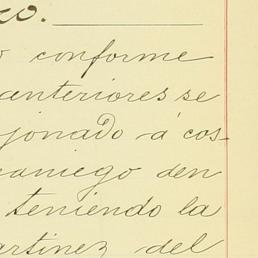 co.
o conforme
anteriores se
jonado á cos-
aniego den
teniendo la
artinez del